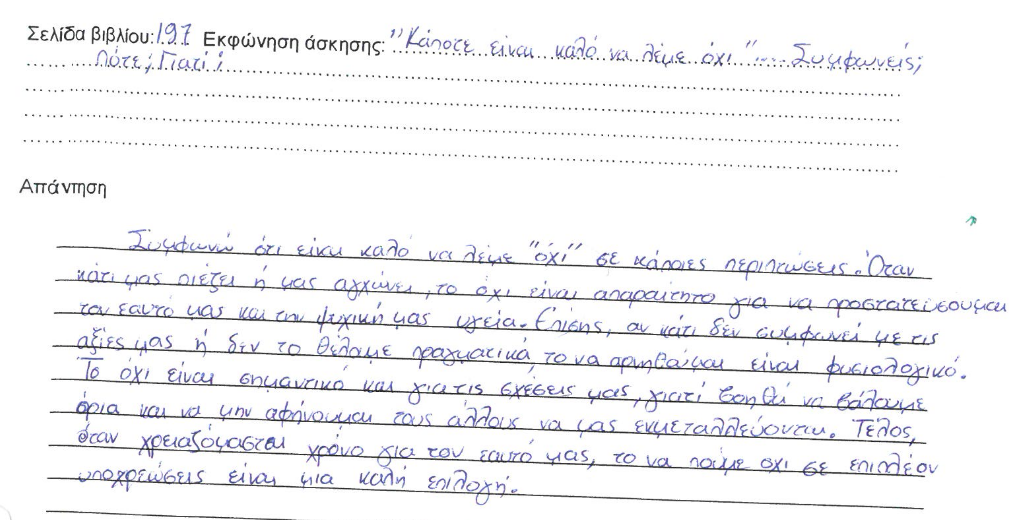 Σελίδα βιβλίου: 197 Εκφώνηση άσκησης: "Κάποτε είναι καλό να λέμε όχι"..... Συμφωνείς;
Πότε; Γιατί;
Απάντηση
Συμφωνώ ότι είναι καλό να λέμε "όχι" σε κάποιες περιπτώσεις. Όταν
κάτι μας πιέζει ή μας αγχώνει, το όχι είναι απαραίτητο για να προστατεύσουμαι
τον εαυτό μας και την ψυχική μας υγεία. Επίσης, αν κάτι δεν συμφωνεί με τις
αξίες μας ή δεν το θέλαμε πραγματικά, το να αρνηθούμαι είναι φυσιολογικό.
Το όχι είναι σημαντικό και για τις σχέσεις μας, γιατί βοηθά να βάλουμε
όρια και να μην αφήνουμαι τους άλλους να μας εκμεταλλεύονται. Τέλος,
όταν χρειαζόμασται χρόνο για τον εαυτό μας, το να πούμε οχι σε επιπλέον
υποχρεώσεις είναι μια καλή επιλογή.